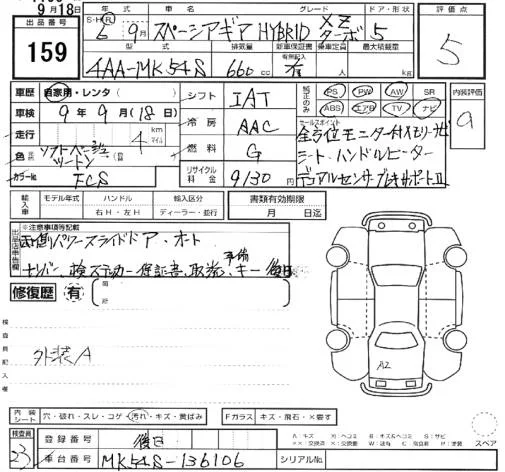 9月18日
出品番号 159
S・H・R 6 9月 スペーシアギア HYBRID XZ ターボ 5
グレード ドア・形状
型式 排気量 新車保証書 乗車定員 最大積載量
4AA-MK54S 660 cc 有 人 kg
評価点 5
車歴 自家用・レンタ
車検 9年9月(18日)
走行 4 km マイル
色 ソフトベージュ ツートン
カラーNo FCS
シフト IAT
冷房 AAC
燃料 G
リサイクル料金 9130
純正のみ PS PW AW SR
ABS エアB TV ナビ
内装評価 a
セールスポイント
全方位モニター付メモリーナビ
シート、ハンドルヒーター
デュアルセンサブレーキサポートII
輸入車 モデル年式 ハンドル 輸入区分 書類有効期限
年 右H・左H ディーラー・並行 月 日迄
出品店申告欄 ※注意事項等記載
両側パワースライドドア・オート
ナンバー、検ステッカー 保証書、取説、予備キー 後日
修復歴 有 箇所
検査員記入欄
外装A
A2
内装シート 穴・破れ・スレ・コゲ・汚れ・キズ・黄ばみ
Fガラス キズ・飛石・×要す
A:キズ
スペア
検査員 23
登録番号 後日
車台番号 MK54S-136106
シリアルNo.